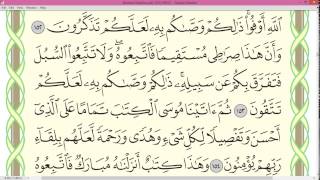 ٱللَّهِ أَوْفُوا۟ ذَٰلِكُمْ وَصَّىٰكُم بِهِۦ لَعَلَّكُمْ تَذَكَّرُونَ ١٥٢
وَأَنَّ هَٰذَا صِرَٰطِى مُسْتَقِيمًا فَٱتَّبِعُوهُ ۖ وَلَا تَتَّبِعُوا۟ ٱلسُّبُلَ
فَتَفَرَّقَ بِكُمْ عَن سَبِيلِهِۦ ۚ ذَٰلِكُمْ وَصَّىٰكُم بِهِۦ لَعَلَّكُمْ
تَتَّقُونَ ١٥٣ ثُمَّ ءَاتَيْنَا مُوسَى ٱلْكِتَٰبَ تَمَامًا عَلَى ٱلَّذِىٓ
أَحْسَنَ وَتَفْصِيلًا لِّكُلِّ شَىْءٍ وَهُدًى وَرَحْمَةً لَّعَلَّهُم بِلِقَآءِ
رَبِّهِمْ يُؤْمِنُونَ ١٥٤ وَهَٰذَا كِتَٰبٌ أَنزَلْنَٰهُ مُبَارَكٌ فَٱتَّبِعُوهُ